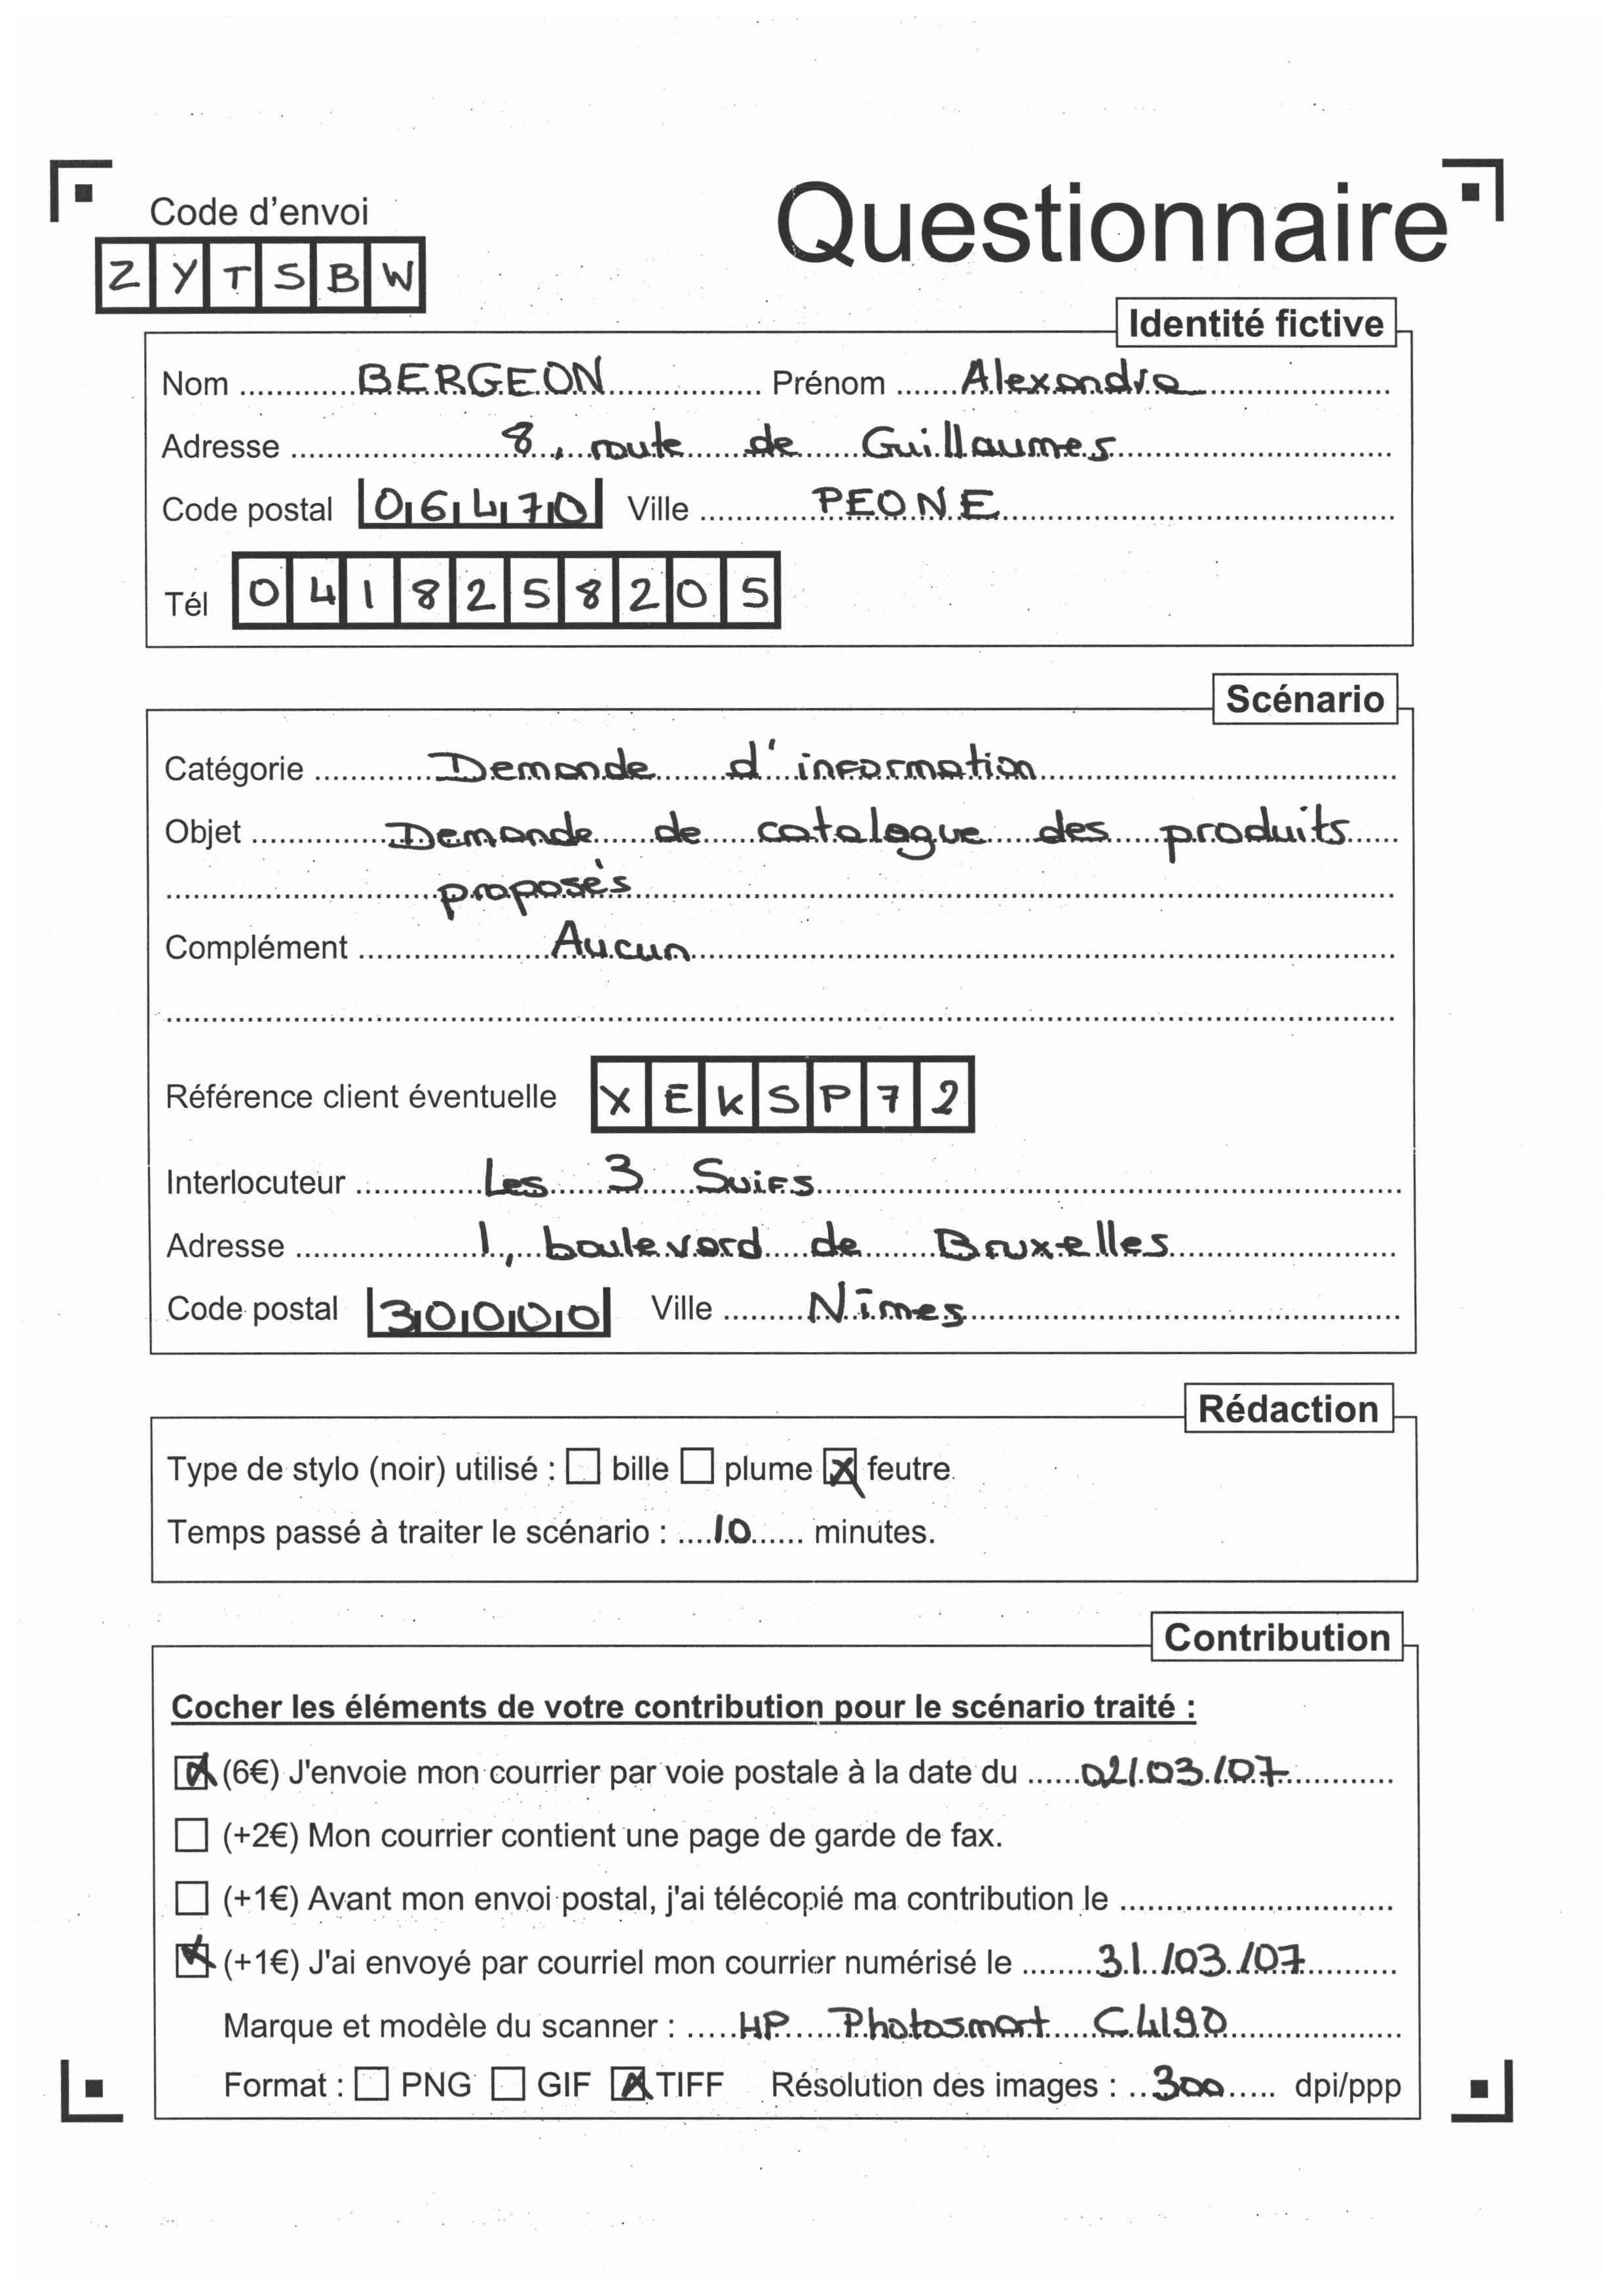 Code d'envoi
Questionnaire
Z Y T S B W
Identité fictive
Nom ............ BERGEON ................ Prénom ....... Alexandra ....................
Adresse ....................... 8, route de Guillaumes ..............................
Code postal 06470 Ville ............ PEONE ...........................................
Tél 0418258205
Scénario
Catégorie ............. Demande d'information .......................................
Objet ............... Demande de catalogue des produits .....
.............................. proposés ...................................................................................
Complément ..................... Aucun .............................................................................
........................................................................................................................................
Référence client éventuelle X E K S P 7 2
Interlocuteur .............. Les 3 Suifs ................................................................
Adresse .................... 1, boulevard de Bruxelles .........................
Code postal 30000 Ville ......... Nîmes ................................................
Rédaction
Type de stylo (noir) utilisé : ☐ bille ☐ plume ☒ feutre
Temps passé à traiter le scénario : .... 10 ...... minutes.
Contribution
Cocher les éléments de votre contribution pour le scénario traité :
☒ (6€) J'envoie mon courrier par voie postale à la date du ...... 02/03/07 ............
☐ (+2€) Mon courrier contient une page de garde de fax.
☐ (+1€) Avant mon envoi postal, j'ai télécopié ma contribution le ..............................
☒ (+1€) J'ai envoyé par courriel mon courrier numérisé le ........ 31/03/07 ..........
Marque et modèle du scanner : ..... HP Photosmart C4190 ...................
Format : ☐ PNG ☐ GIF ☒ TIFF Résolution des images : .. 300 ..... dpi/ppp